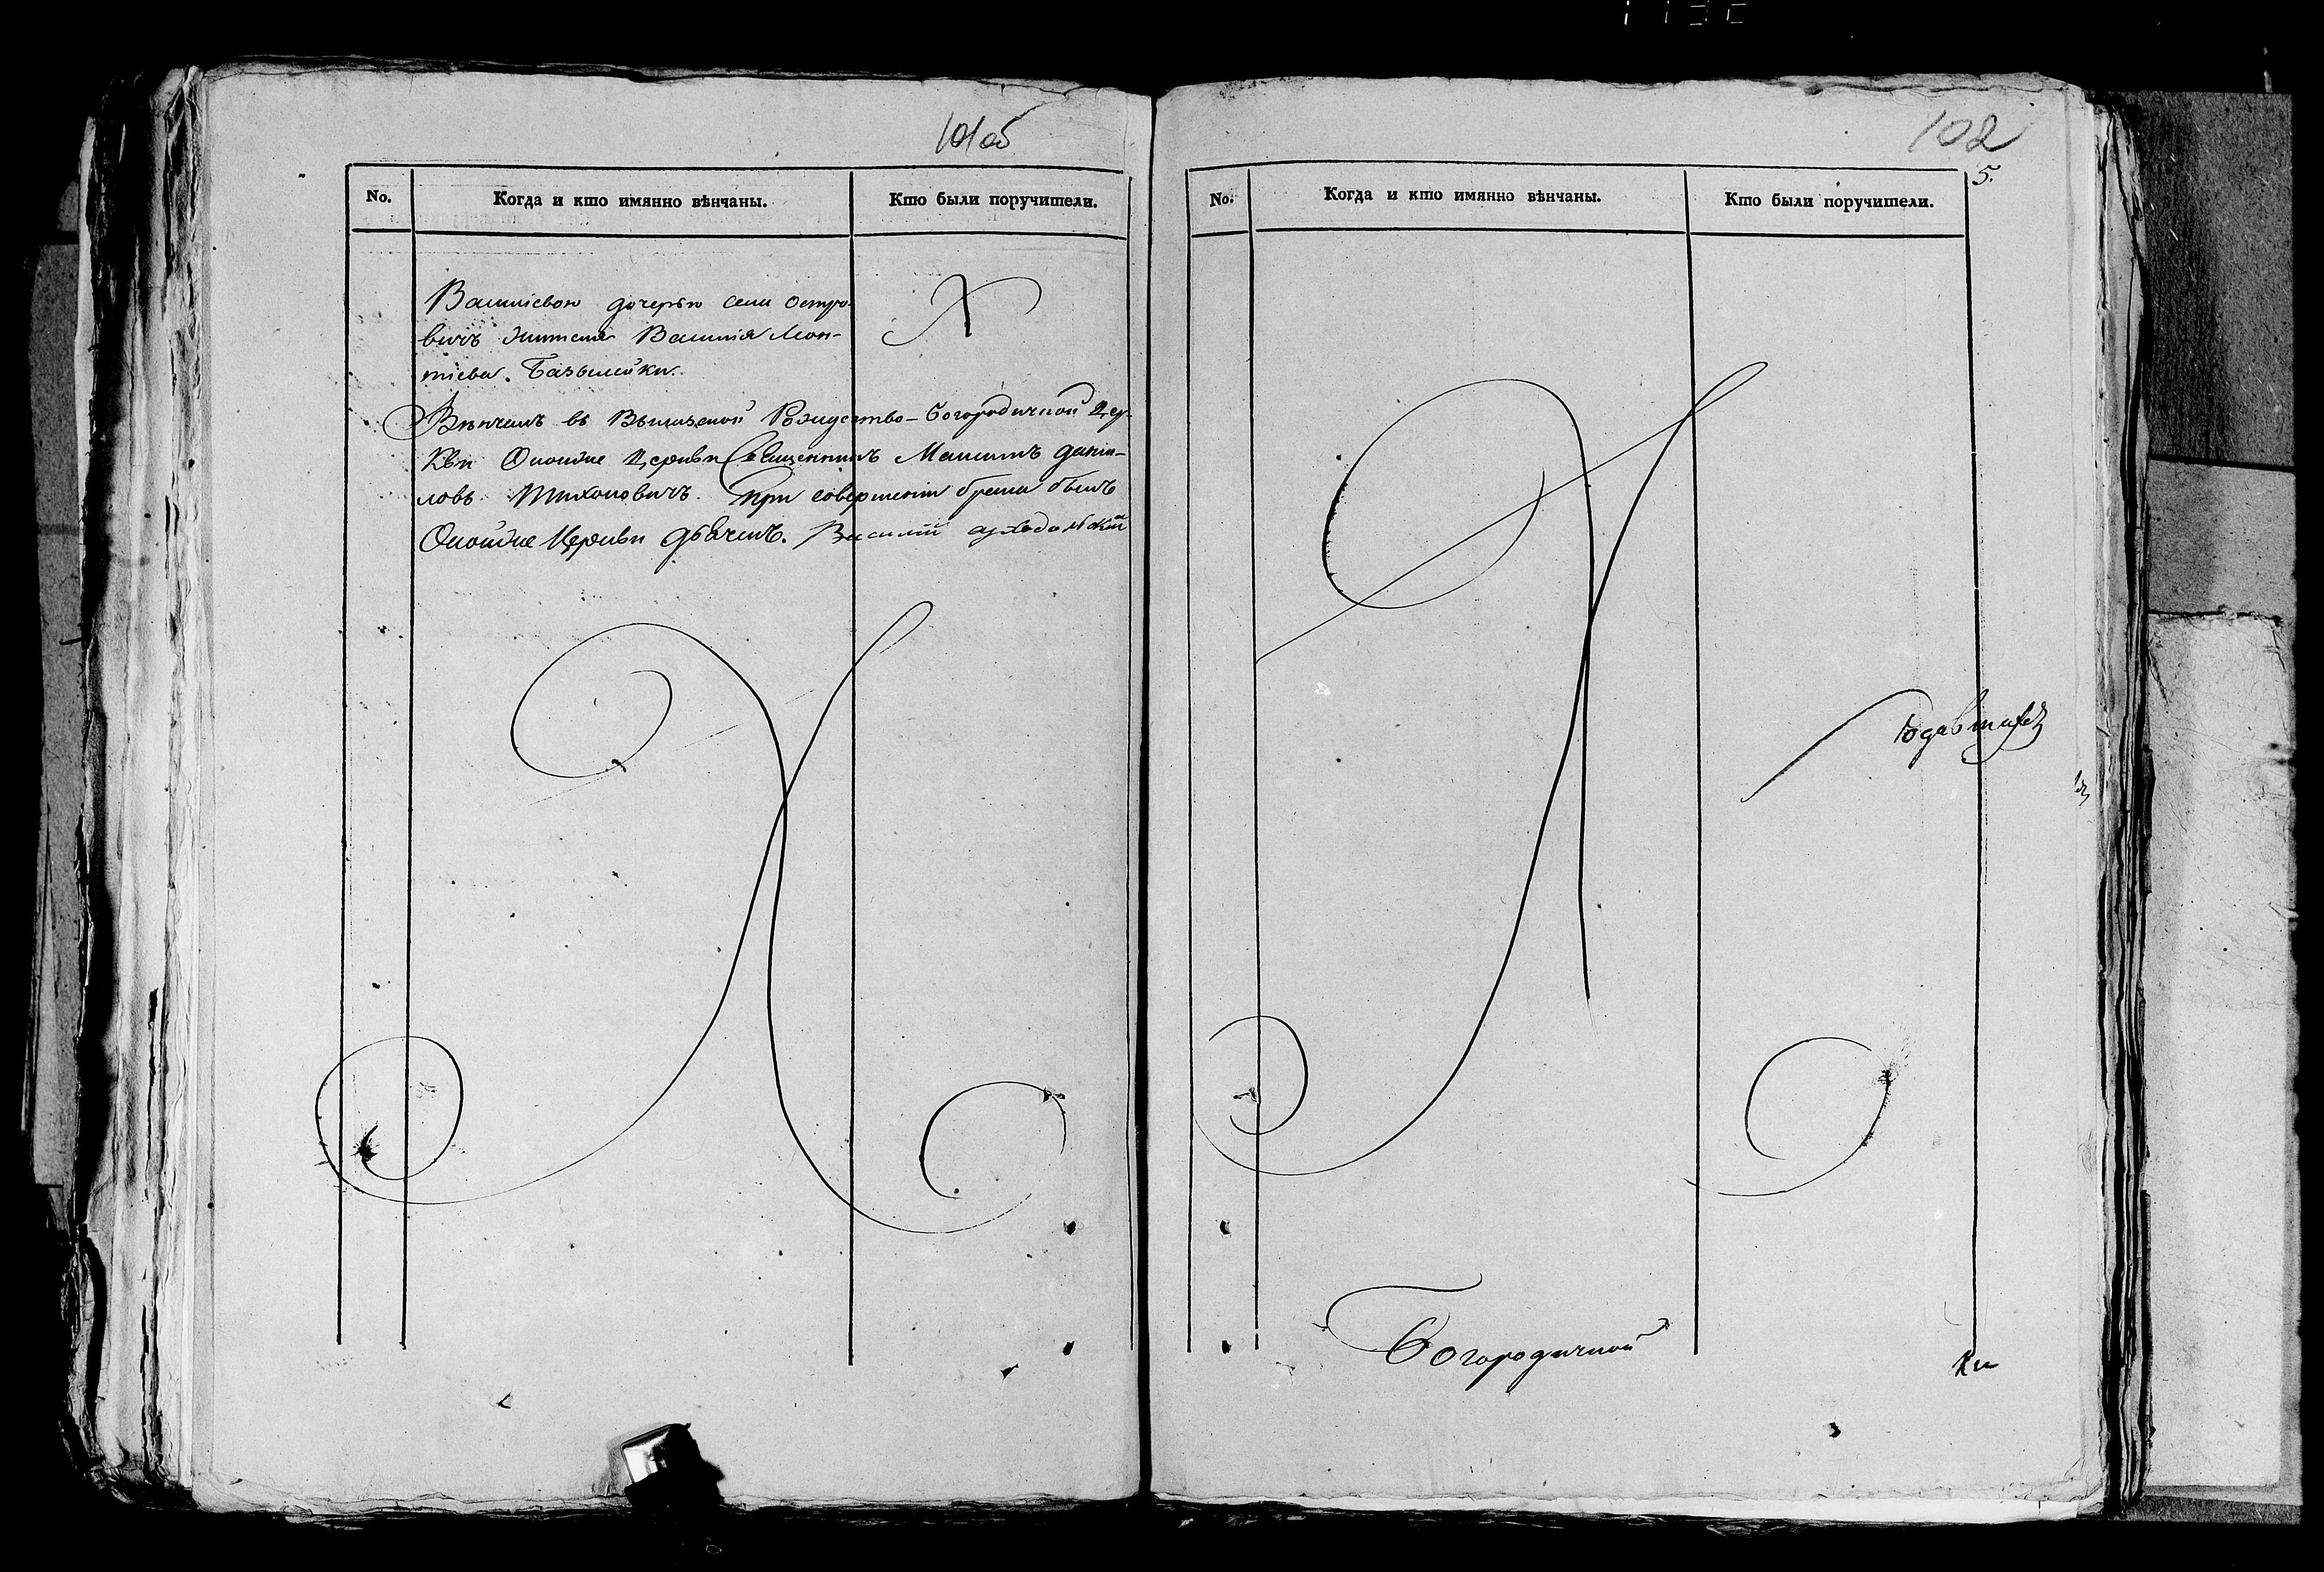 101об
No. Когда и кто имянно вѣнчаны. Кто были поручители.
Василіевою дочерью села Остро-
вичъ жителя Василія Леон-
тіева. Базылейки.
Вѣнчалъ въ Рождество-Богородичной Цер-
кви Оной же Церкви Священникъ Максимъ Даніи-
ловъ Тихоновичъ. При совершеніи брака былъ
Оной же Церкви Дьячекъ. Василій
102
5.
No. Когда и кто имянно вѣнчаны. Кто были поручители.
Богородичной
Ки